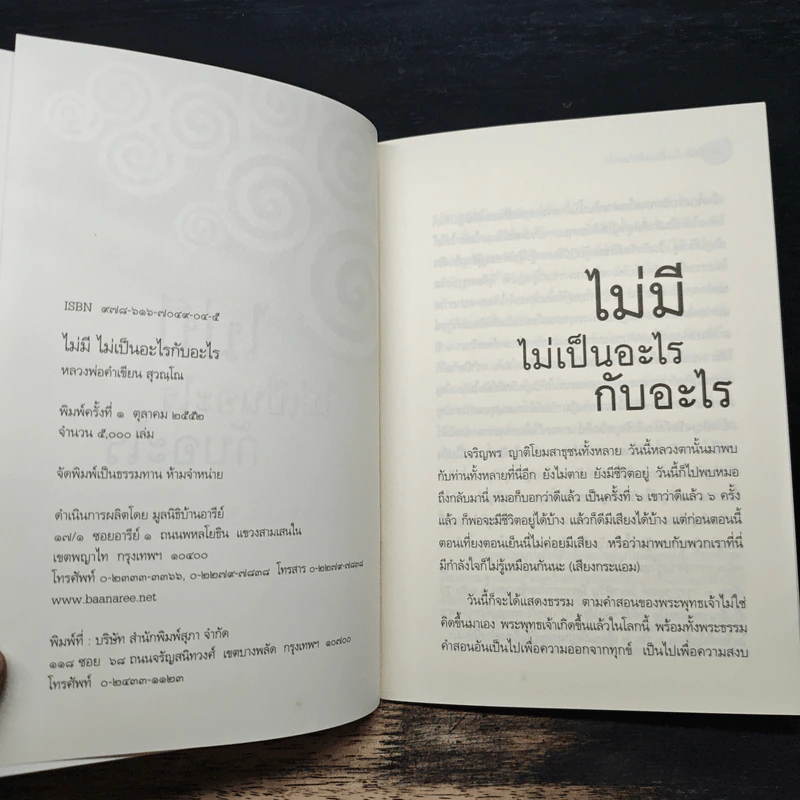 ISBN ๙๗๘-๖๑๖-๗๐๔๙-๐๔-๕
ไม่มี ไม่เป็นอะไรกับอะไร
หลวงพ่อคำเขียน สุวณฺโณ
พิมพ์ครั้งที่ ๑ ตุลาคม ๒๕๕๒
จำนวน ๕,๐๐๐ เล่ม
จัดพิมพ์เป็นธรรมทาน ห้ามจำหน่าย
ดำเนินการผลิตโดย มูลนิธิบ้านอารีย์
๑๗/๑ ซอยอารีย์ ๑ ถนนพหลโยธิน แขวงสามเสนใน
เขตพญาไท กรุงเทพฯ ๑๐๔๐๐
โทรศัพท์ ๐-๒๓๓๓-๓๓๖๖, ๐-๒๒๗๙-๗๘๓๘ โทรสาร ๐-๒๒๗๙-๗๘๓๘
www.baanaree.net
พิมพ์ที่ : บริษัท สำนักพิมพ์สุภา จำกัด
๑๑๘ ซอย ๖๘ ถนนจรัญสนิทวงศ์ เขตบางพลัด กรุงเทพฯ ๑๐๗๐๐
โทรศัพท์ ๐-๒๔๓๓-๑๑๒๓
ไม่มี
ไม่เป็นอะไร
กับอะไร
เจริญพร ญาติโยมสาธุชนทั้งหลาย วันนี้หลวงตานั้นมาพบ
กับท่านทั้งหลายที่นี่อีก ยังไม่ตาย ยังมีชีวิตอยู่ วันนี้ก็ไปพบหมอ
ถึงกลับมานี่ หมอก็บอกว่าดีแล้ว เป็นครั้งที่ ๖ เขาว่าดีแล้ว ๖ ครั้ง
แล้ว ก็พอจะมีชีวิตอยู่ได้บ้าง แล้วก็ดีมีเสียงได้บ้าง แต่ก่อนตอนนี้
ตอนเที่ยงตอนเย็นนี้ไม่ค่อยมีเสียง หรือว่ามาพบกับพวกเราที่นี่
มีกำลังใจก็ไม่รู้เหมือนกันนะ (เสียงกระแอม)
วันนี้ก็จะได้แสดงธรรม ตามคำสอนของพระพุทธเจ้าไม่ใช่
คิดขึ้นมาเอง พระพุทธเจ้าเกิดขึ้นแล้วในโลกนี้ พร้อมทั้งพระธรรม
คำสอนอันเป็นไปเพื่อความออกจากทุกข์ เป็นไปเพื่อความสงบ